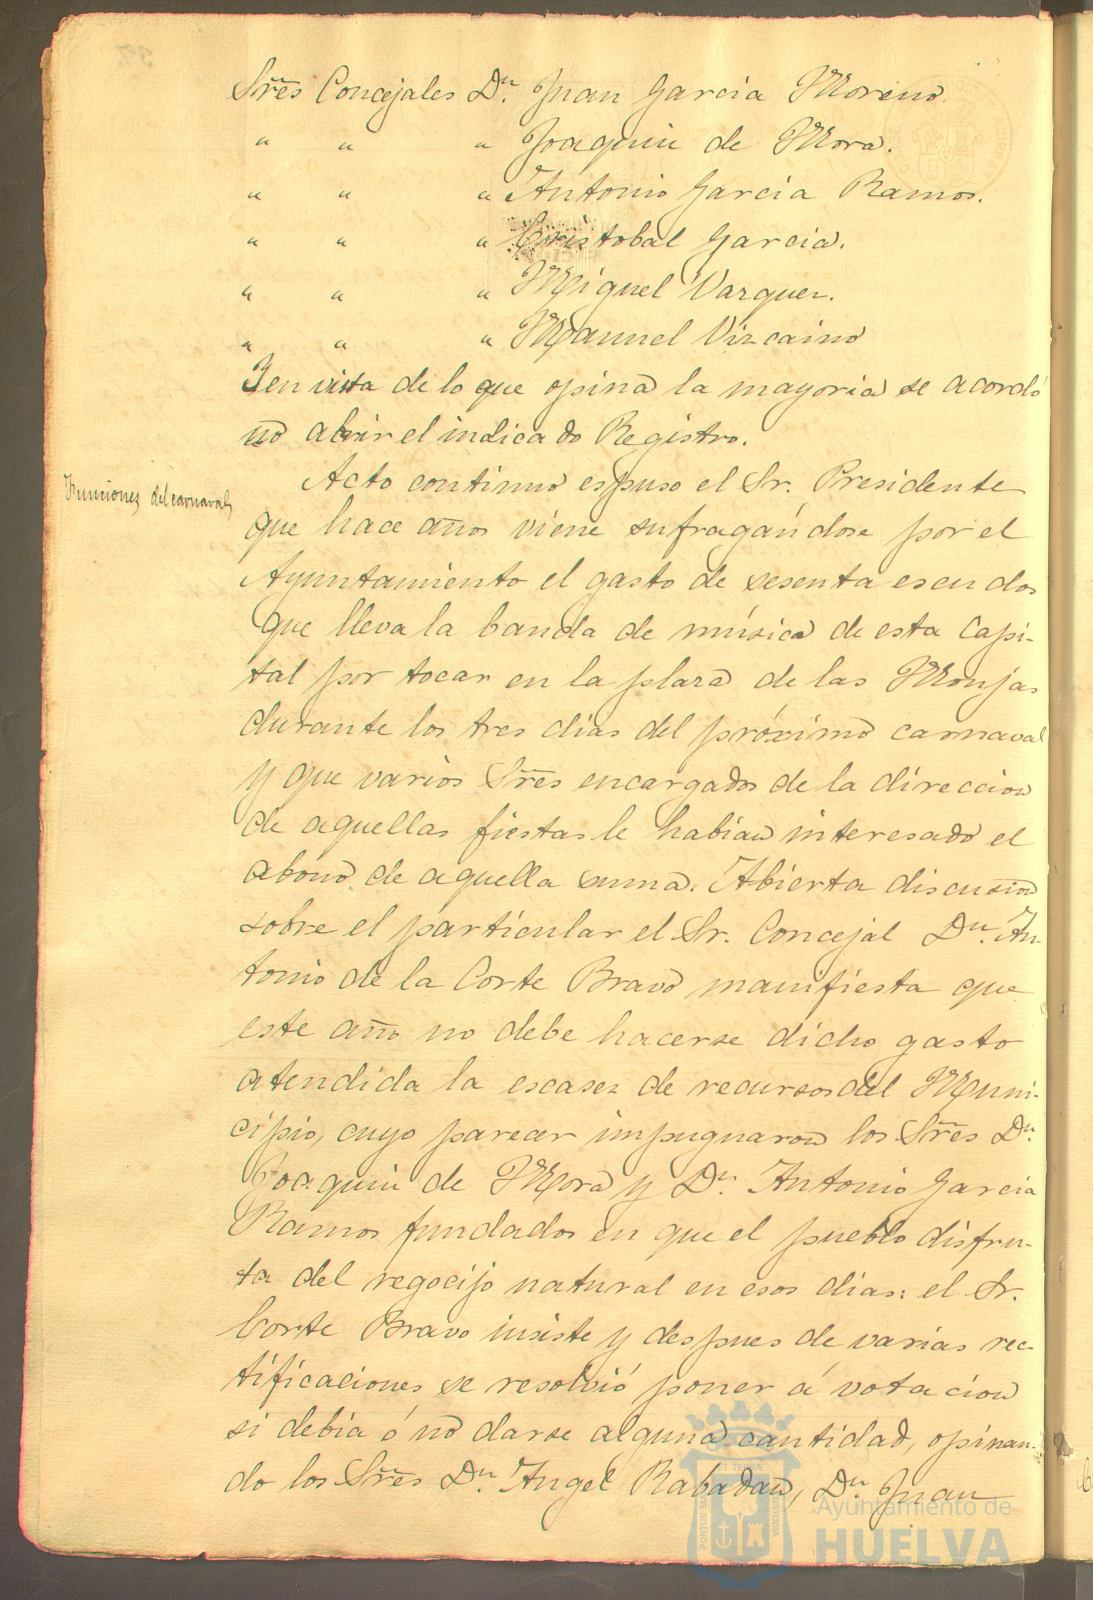 Sres Concejales Dn. Juan Garcia Moreno.
" " " Joaquin de Mora.
" " " Antonio Garcia Ramos.
" " " Cristobal Garcia.
" " " Miguel Vazquez.
" " " Manuel Vizcaino
Y en vista de lo que opina la mayoria se acordó
no abrir el indicado Registro.
Funciones del carnaval
Acto continuo espuso el Sr. Presidente
que hace años viene sufragándose por el
Ayuntamiento el gasto de sesenta escudos
que lleva la banda de música de esta Capi-
tal por tocar en la plaza de las Monjas
durante los tres dias del próximo carnaval
y que varios Sres encargados de la direccion
de aquellas fiestas le habian interesado el
abono de aquella suma. Abierta discusion
sobre el particular el Sr. Concejal Dn. An-
tonio de la Corte Bravo manifiesta que
este año no debe hacerse dicho gasto
atendida la escasez de recursos del Muni-
cipio, cuyo parecer impugnaron los Sres Dn.
Joaquin de Mora y Dn. Antonio Garcia
Ramos fundados en que el pueblo disfru-
ta del regocijo natural en esos dias: el Sr.
Corte Bravo insiste y despues de varias rec-
tificaciones se resolvió poner á votacion
si debia ó no darse alguna cantidad, opinan-
do los Sres Dn. Angel Rabadan, Dn. Juan
Ayuntamiento de
HUELVA